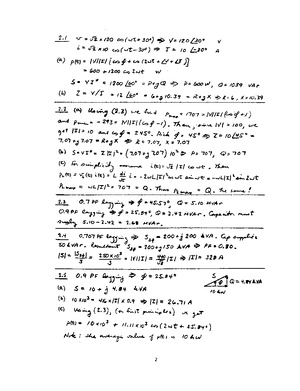 2.1 v = √2 × 120 cos(ωt+30°) ⇒ V = 120∠30° V
i = √2 × 10 cos(ωt-30°) ⇒ I = 10∠-30° A
(a) p(t) = |V||I| [cos φ + cos(2ωt + ∠V + ∠I)]
= 600 + 1200 cos 2ωt W
S = VI* = 1200∠60° = P+jQ ⇒ P = 600 W, Q = 1039 VAr
(b) Z = V/I = 12∠60° = 6 + j10.39 = R + jX ⇒ R = 6, X = 10.39
2.2 (a) Using (2.3) we find pmax = 1707 = |V||I|(cos φ + 1)
and pmin = -293 = |V||I|(cos φ - 1). Then, since |V| = 100, we
get |I| = 10 and cos φ = Pick φ = 45° ⇒ Z = 10∠45° =
7.07 + j7.07 = R + jX ⇒ R = 7.07, X = 7.07
(b) S = VI* = Z|I|² = (7.07 + j7.07) 10² ⇒ P = 707, Q = 707
(c) For simplicity assume i(t) = √2 |I| cos ωt. Then
pL(t) = vL(t) i(t) = L di/dt i = -2ωL|I|² cos ωt sin ωt = -ωL|I|² sin 2ωt
pmax = ωL|I|² = 707 = Q. Thus pmax = Q. the same!
2.3 0.7 PF lagging ⇒ φ = 45.57°, Q = 5.10 MVAr
0.9 PF lagging ⇒ φ = 25.84°, Q = 2.42 MVAr. Capacitor must
supply 5.10 - 2.42 = 2.68 MVAr.
2.4 0.707 PF lagging ⇒ S3φ = 200 + j200 kVA. Cap supplies
50 kVAr. Resultant S3φ = 200 + j150 kVA ⇒ PF = 0.80.
|S| = |S3φ|/3 = 250×10³/3 = |V||I| = 440/√3 |I| ⇒ |I| = 328 A
2.5 0.9 PF lagging ⇒ φ = 25.84°
S Q = 4.84 kVAr
10 kW
(a) S = 10 + j 4.84 kVA
(b) 10×10³ = |I| × 0.9 ⇒ |I| = 26.71 A
(c) Using (2.3), (or first principles) we get
p(t) = 10×10³ + 11.11×10³ cos(2ωt + 25.84°)
Note: the average value of p(t) is 10 kW
2